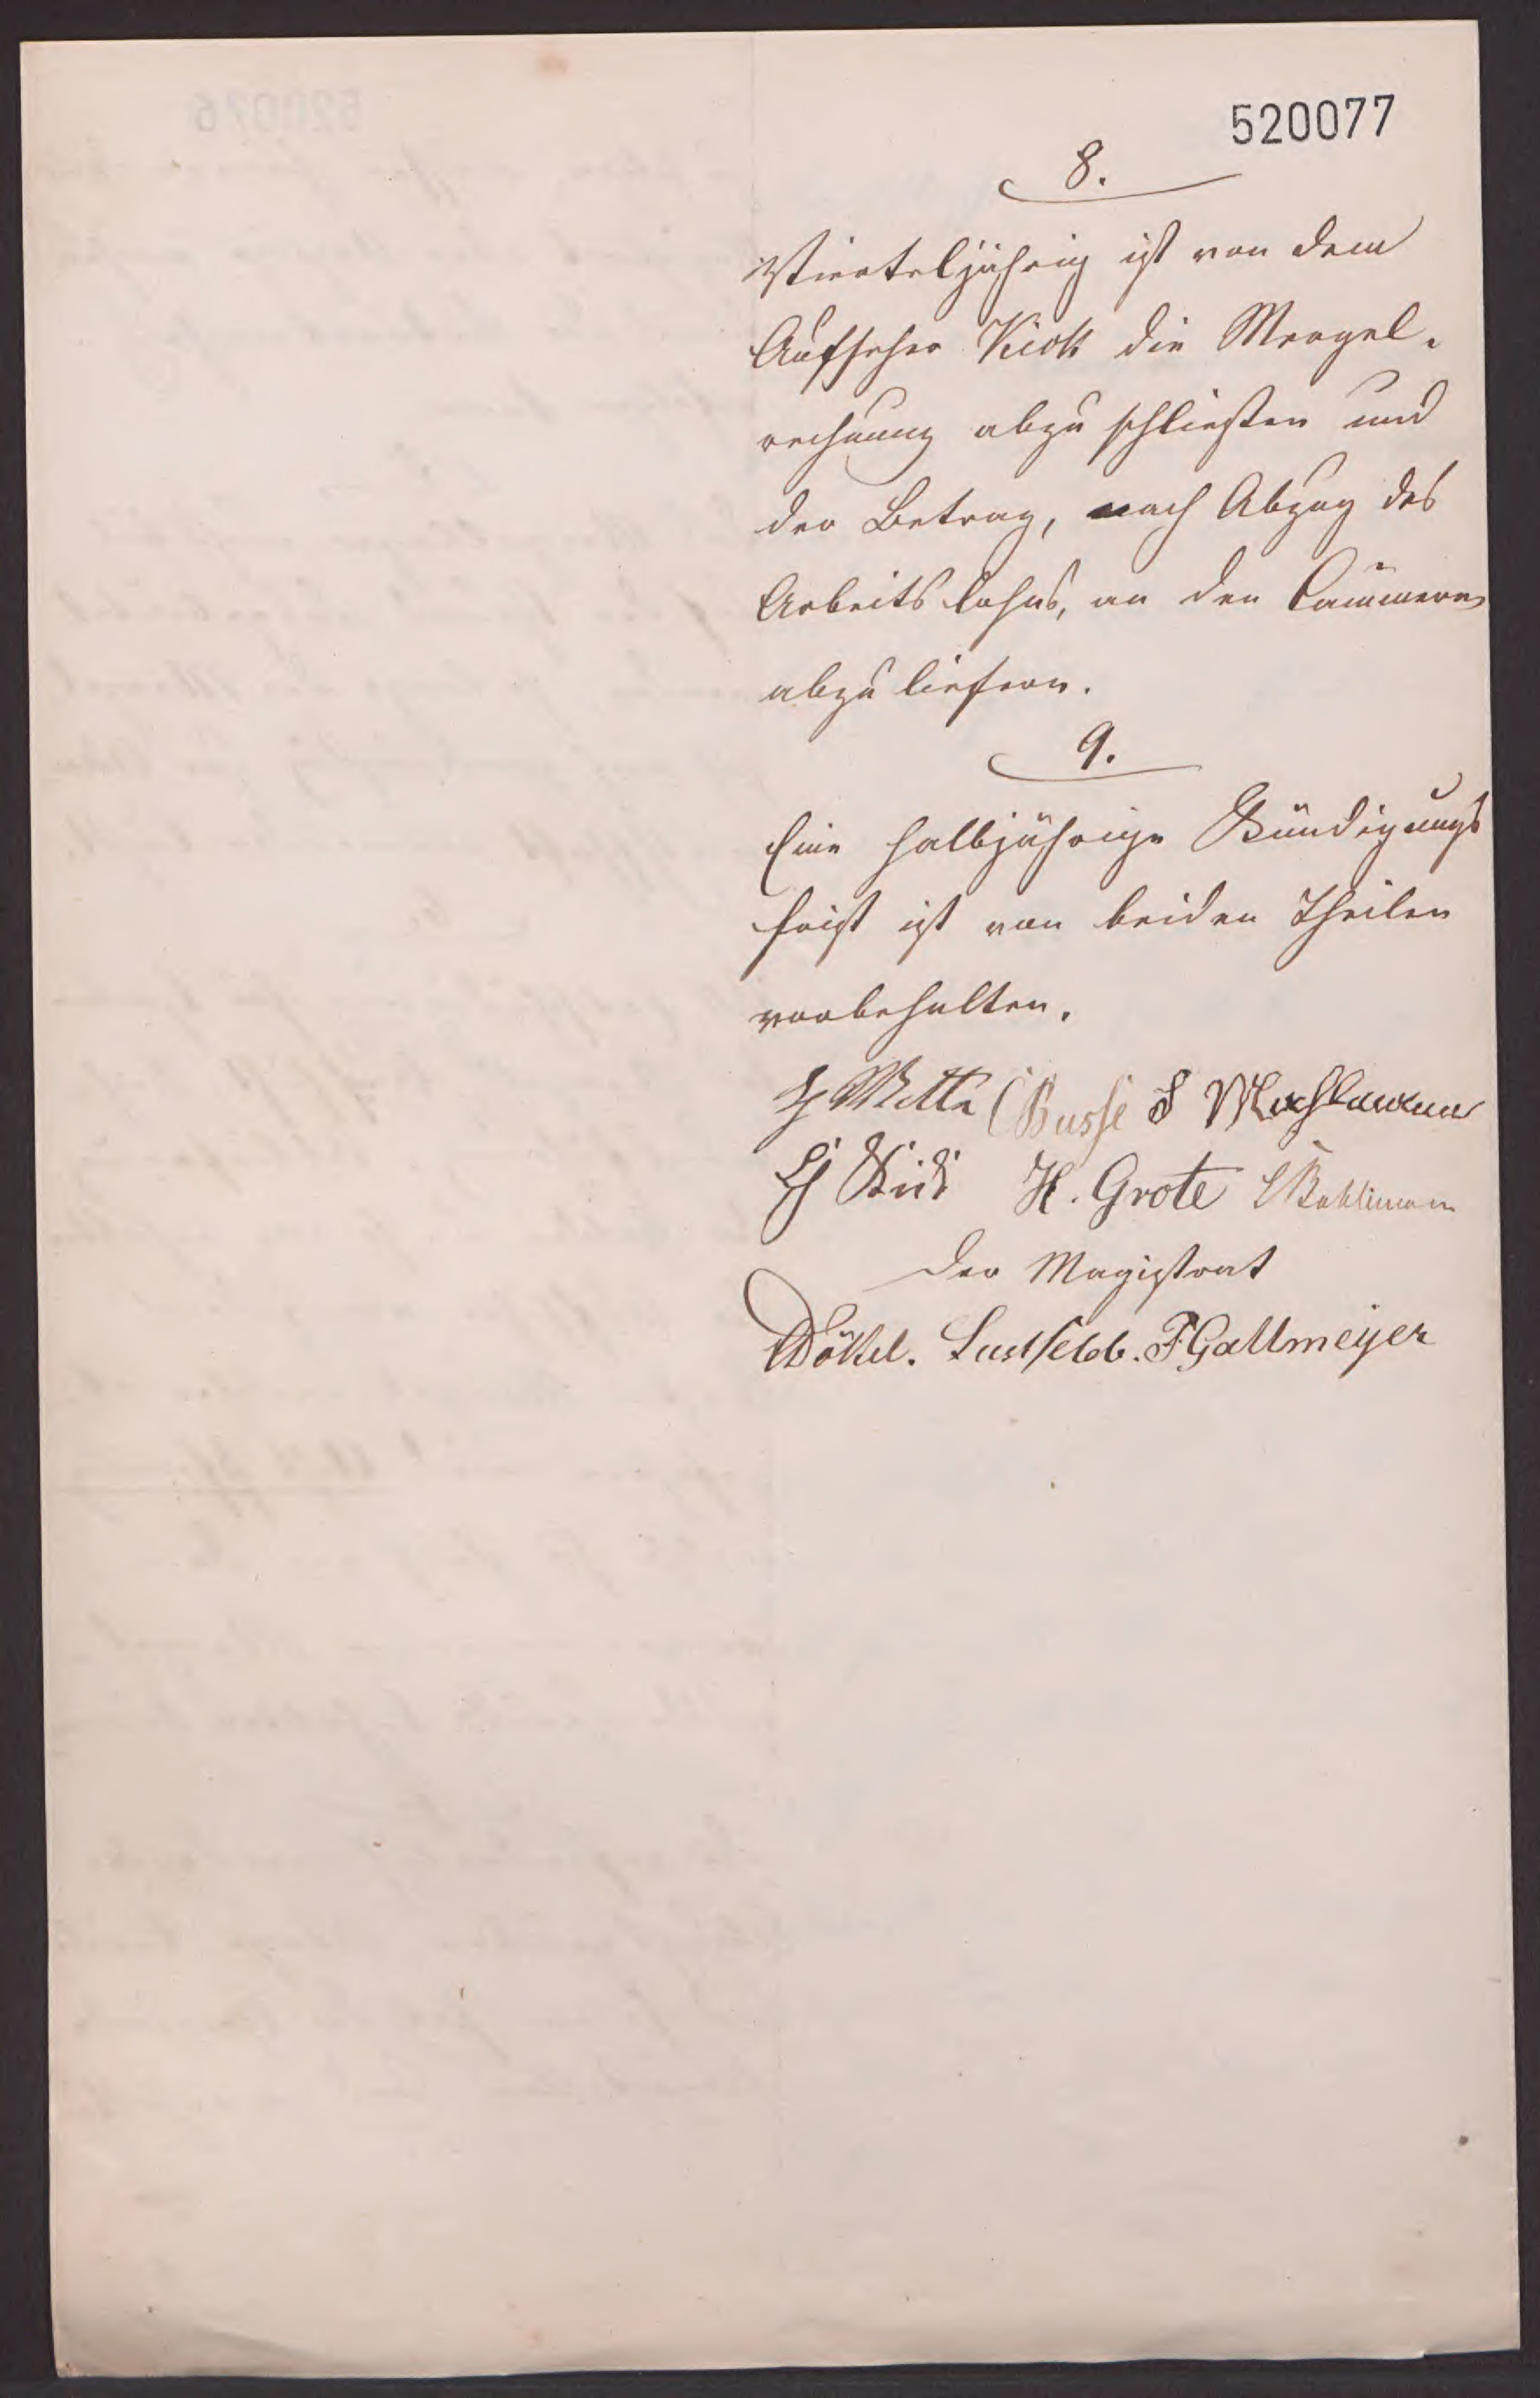 520077
8.
Vierteljährig ist von dem
Aufseher Kick die Mergel-
rechnung abzuschließen und
der Betrag, nach Abzug des
Arbeitslohns, an den Cämmerer
abzuliefern.
9.
Eine halbjährige Kündigungs
frist ist von beiden Theilen
vorbehalten.
H Witte C Busse
H. Grote
Der Magistrat
Lustfeld. F Gallmeyer